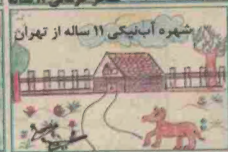 شهره آب‌نیکی ۱۱ ساله از تهران